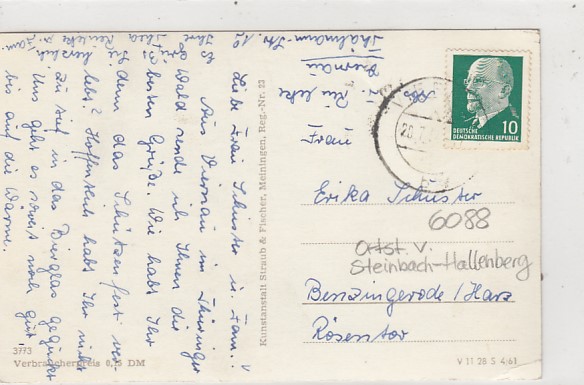 Abs.
Th. Reinleke
Viernau
Thälmann-Str. 12
Liebe Frau Schuster u. Fam.!
Aus Viernau im Thüringer
Wald sende ich Ihnen die
besten Grüße. Wie habt Ihr
denn das Schützenfest ver-
lebt? Hoffentlich habt Ihr nicht
zu tief in das Bierglas geguckt
Uns geht es soweit noch gut
bis auf die Wärme.
herzlich
Ihre
u. Fam.
3773
Verbraucherpreis 0,15 DM
Kunstanstalt Straub & Fischer, Meiningen, Reg.-Nr. 23
DEUTSCHE
DEMOKRATISCHE REPUBLIK
10
Frau
Erika Schuster
6088
Ortst. v.
Steinbach-Hallenberg
Benzingerode / Harz
Rosentor
V 11 28 S 4/61